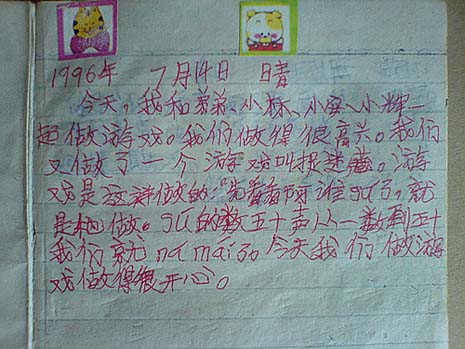 1996年 7月14日 晴
今天,我和弟弟、小林、小宾、小辉一
起做游戏。我们做得很高兴。我们
又做了一个游戏叫捉迷藏。游
戏是这样做的:先看看 谁 了,就
是他做。 的数五十声从一数到五十
我们就 na mai 了。今天我们做游
戏做得很开心。